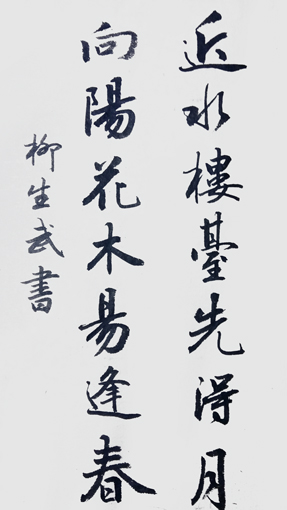 近水樓臺先得月
向陽花木易逢春
柳生武書